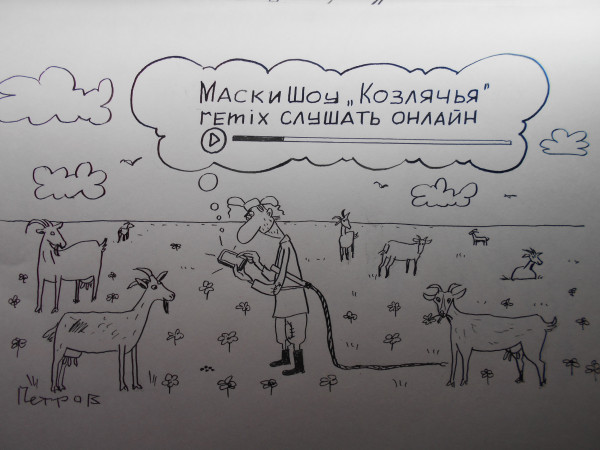 Маски Шоу „Козлячья"
remix слушать онлайн
Петров